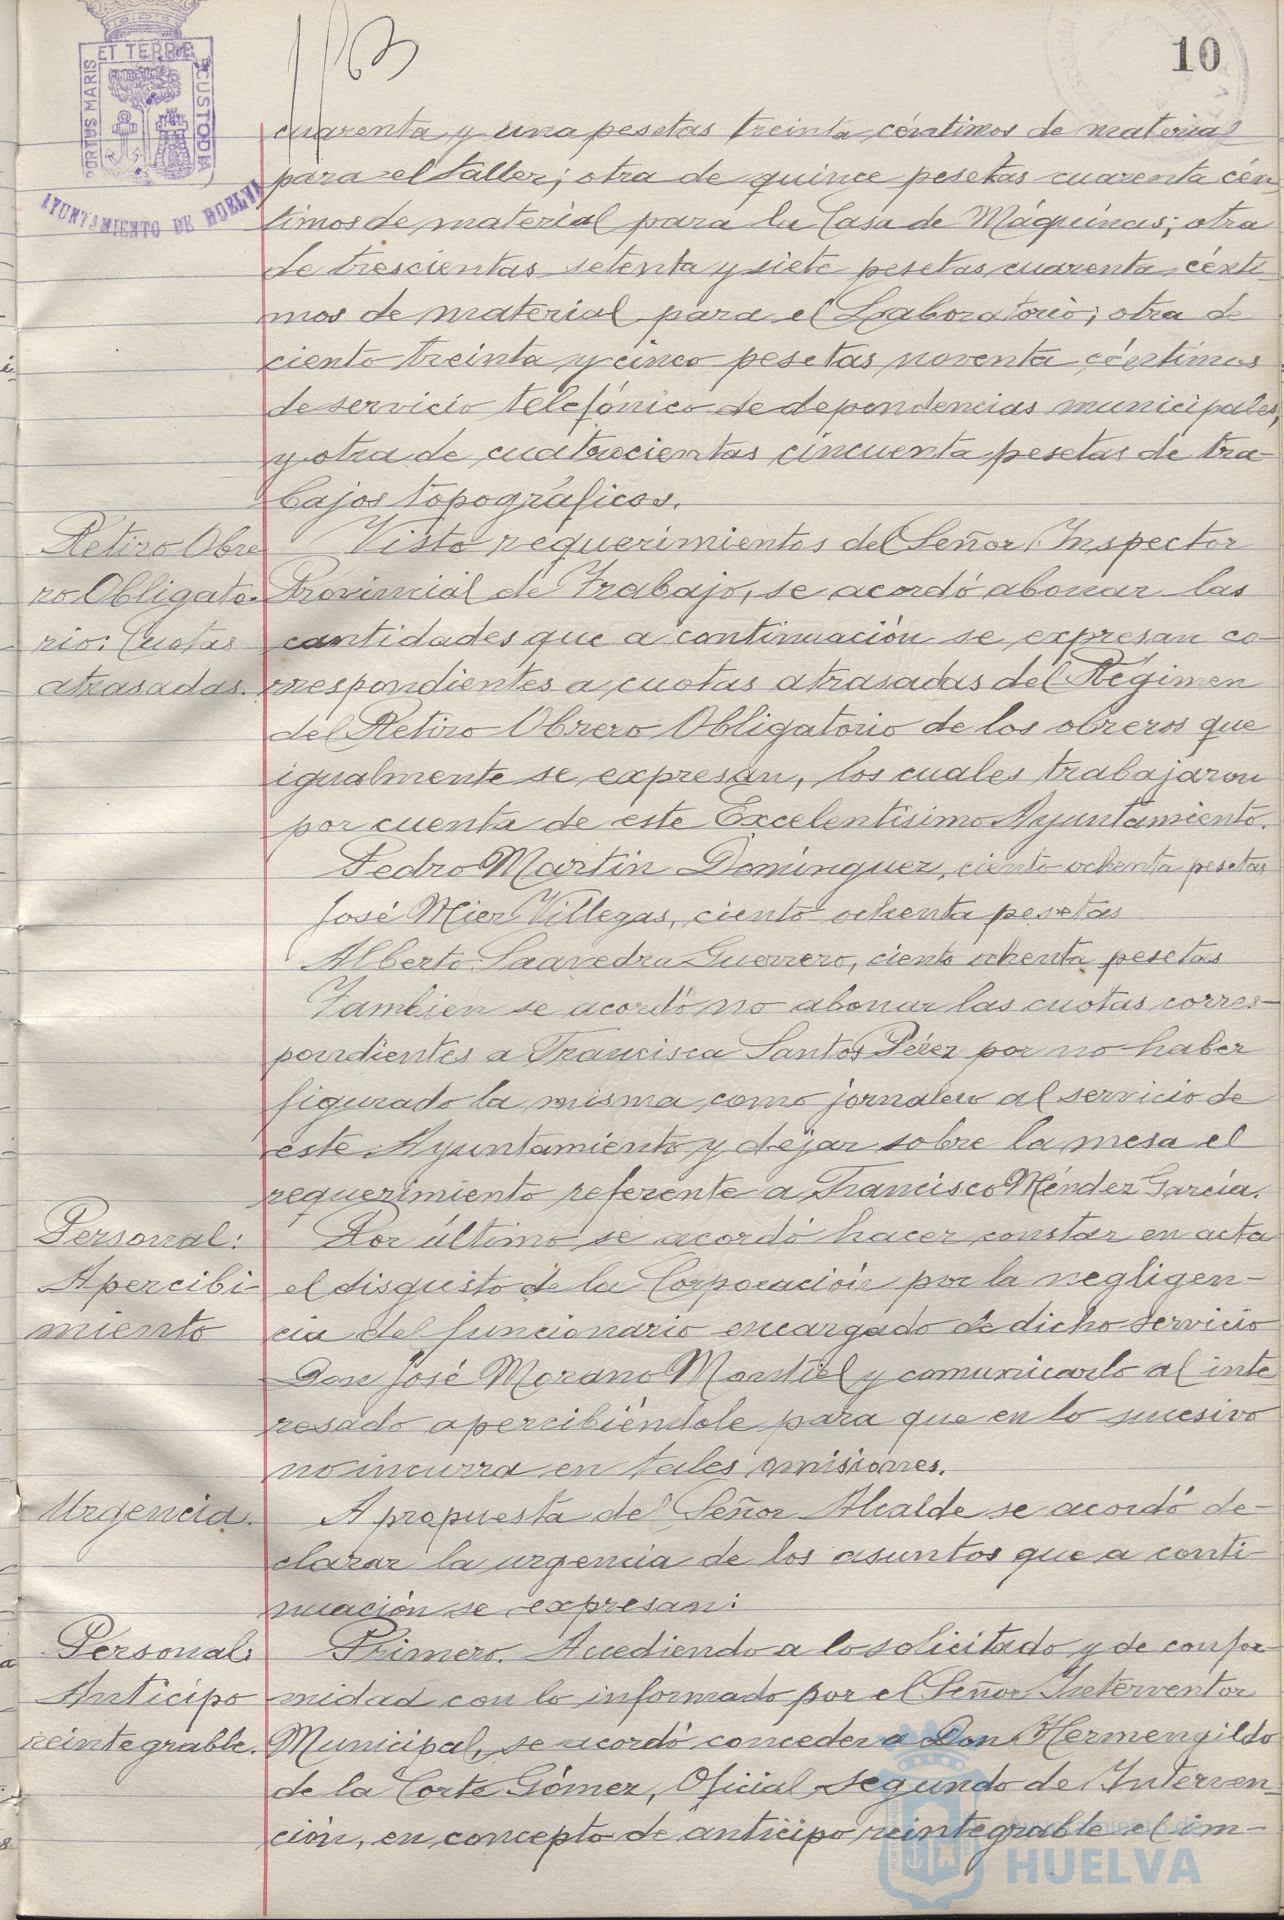 10
PORTUS MARIS ET TERRE CUSTODIA
AYUNTAMIENTO DE HUELVA
cuarenta y una pesetas treinta céntimos de material
para el taller; otra de quince pesetas cuarenta cén-
timos de material para la Casa de Máquinas; otra
de trescientas setenta y siete pesetas cuarenta cénti-
mos de material para el Laboratorio; otra de
ciento treinta y cinco pesetas noventa céntimos
de servicio telefónico de dependencias municipales,
y otra de cuatrocientas cincuenta pesetas de tra-
bajos topográficos.
Retiro Obre
ro Obligato-
rio: Cuotas
atrasadas.
Visto requerimientos del Señor Inspector
Provincial de Trabajo, se acordó abonar las
cantidades que a continuación se expresan co-
rrespondientes a cuotas atrasadas del Régimen
del Retiro Obrero Obligatorio de los obreros que
igualmente se expresan, los cuales trabajaron
por cuenta de este Excelentísimo Ayuntamiento.
Pedro Martín Domínguez, ciento ochenta pesetas
José Mier Villegas, ciento ochenta pesetas
Alberto Saavedra Guerrero, ciento ochenta pesetas
Tambien se acordó no abonar las cuotas corres-
pondientes a Francisca Santos Pérez por no haber
figurado la misma como jornalero al servicio de
este Ayuntamiento y dejar sobre la mesa el
requerimiento referente a Francisco Méndez García.
Personal:
Apercibi-
miento
Por último se acordó hacer constar en acta
el disgusto de la Corporación por la negligen-
cia del funcionario encargado de dicho servicio
Don José Morano Montiel y comunicarlo al inte
resado apercibiéndole para que en lo sucesivo
no incurra en tales omisiones.
Urgencia.
A propuesta del Señor Alcalde se acordó de-
clarar la urgencia de los asuntos que a conti-
nuación se expresan:
Personal:
Anticipo
reintegrable.
Primero. Accediendo a lo solicitado y de confor-
midad con lo informado por el Señor Interventor
Municipal, se acordó conceder a Don Hermengildo
de la Corte Gómez, Oficial segundo de Interven-
ción, en concepto de anticipo reintegrable el im-
Ayuntamiento de
HUELVA